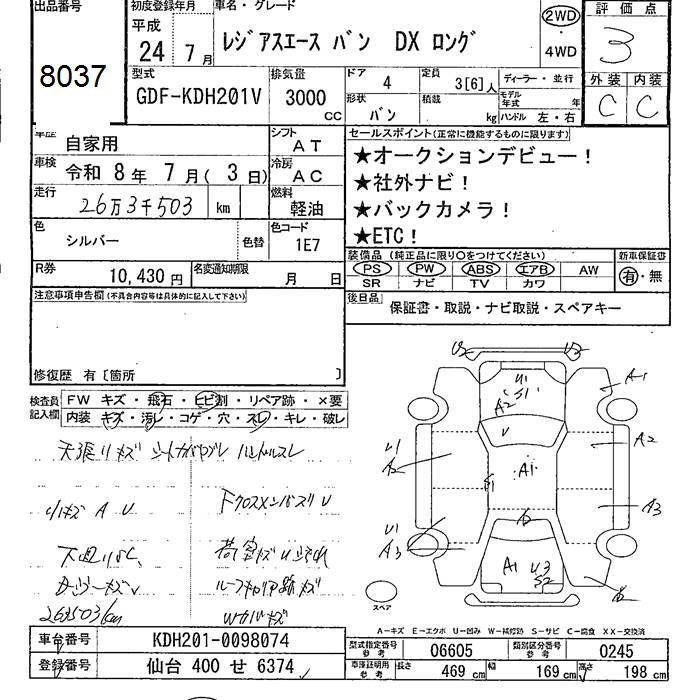 出品番号
8037
初度登録年月
平成
24 7月
車名・グレード
レジアスエース バン DX ロング
2WD
・
4WD
評価点
3
外装 内装
C C
型式
GDF-KDH201V
排気量
3000 cc
ドア 4
定員 3[6]人
ディーラー・並行
形状 バン
積載 kg
モデル年式 年
ハンドル 左・右
車歴 自家用
シフト AT
車検 令和 8年 7月( 3日)
冷房 AC
走行 26万3千503 km
燃料 軽油
色 シルバー
色替
色コード 1E7
R券 10,430円
名変通知期限 月 日
セールスポイント(正常に機能するものに限ります)
★オークションデビュー!
★社外ナビ!
★バックカメラ!
★ETC!
装備品(純正品に限り○をつけてください)
PS PW ABS エアB AW
SR ナビ TV カワ
新車保証書
有・無
後日品
保証書・取説・ナビ取説・スペアキー
注意事項申告欄(不具合内容等は具体的に記入して下さい)
修復歴 有〔箇所 〕
検査員記入欄
FW キズ・飛石・ヒビ割・リペア跡・×要
内装 キズ・汚レ・コゲ・穴・スレ・キレ・破レ
天張リキズ シートカバヤブレ ハンドルスレ
小キズ A U
下廻りサビ
263503km
ルーフキャリア跡キズ
U2 U2
U1
S1
A2
A-1
U
U1
A2
A2
A1
A3
U1
A3
A1 U3
S2
スペア
A-キズ E-エクボ U-凹み W-補修跡 S-サビ C-腐食 XX-交換済
車台番号 KDH201-0098074
登録番号 仙台 400 せ 6374
型式指定番号 参考 06605
類別区分番号 参考 0245
車庫証明用 参考 長さ 469 cm 幅 169 cm 高さ 198 cm